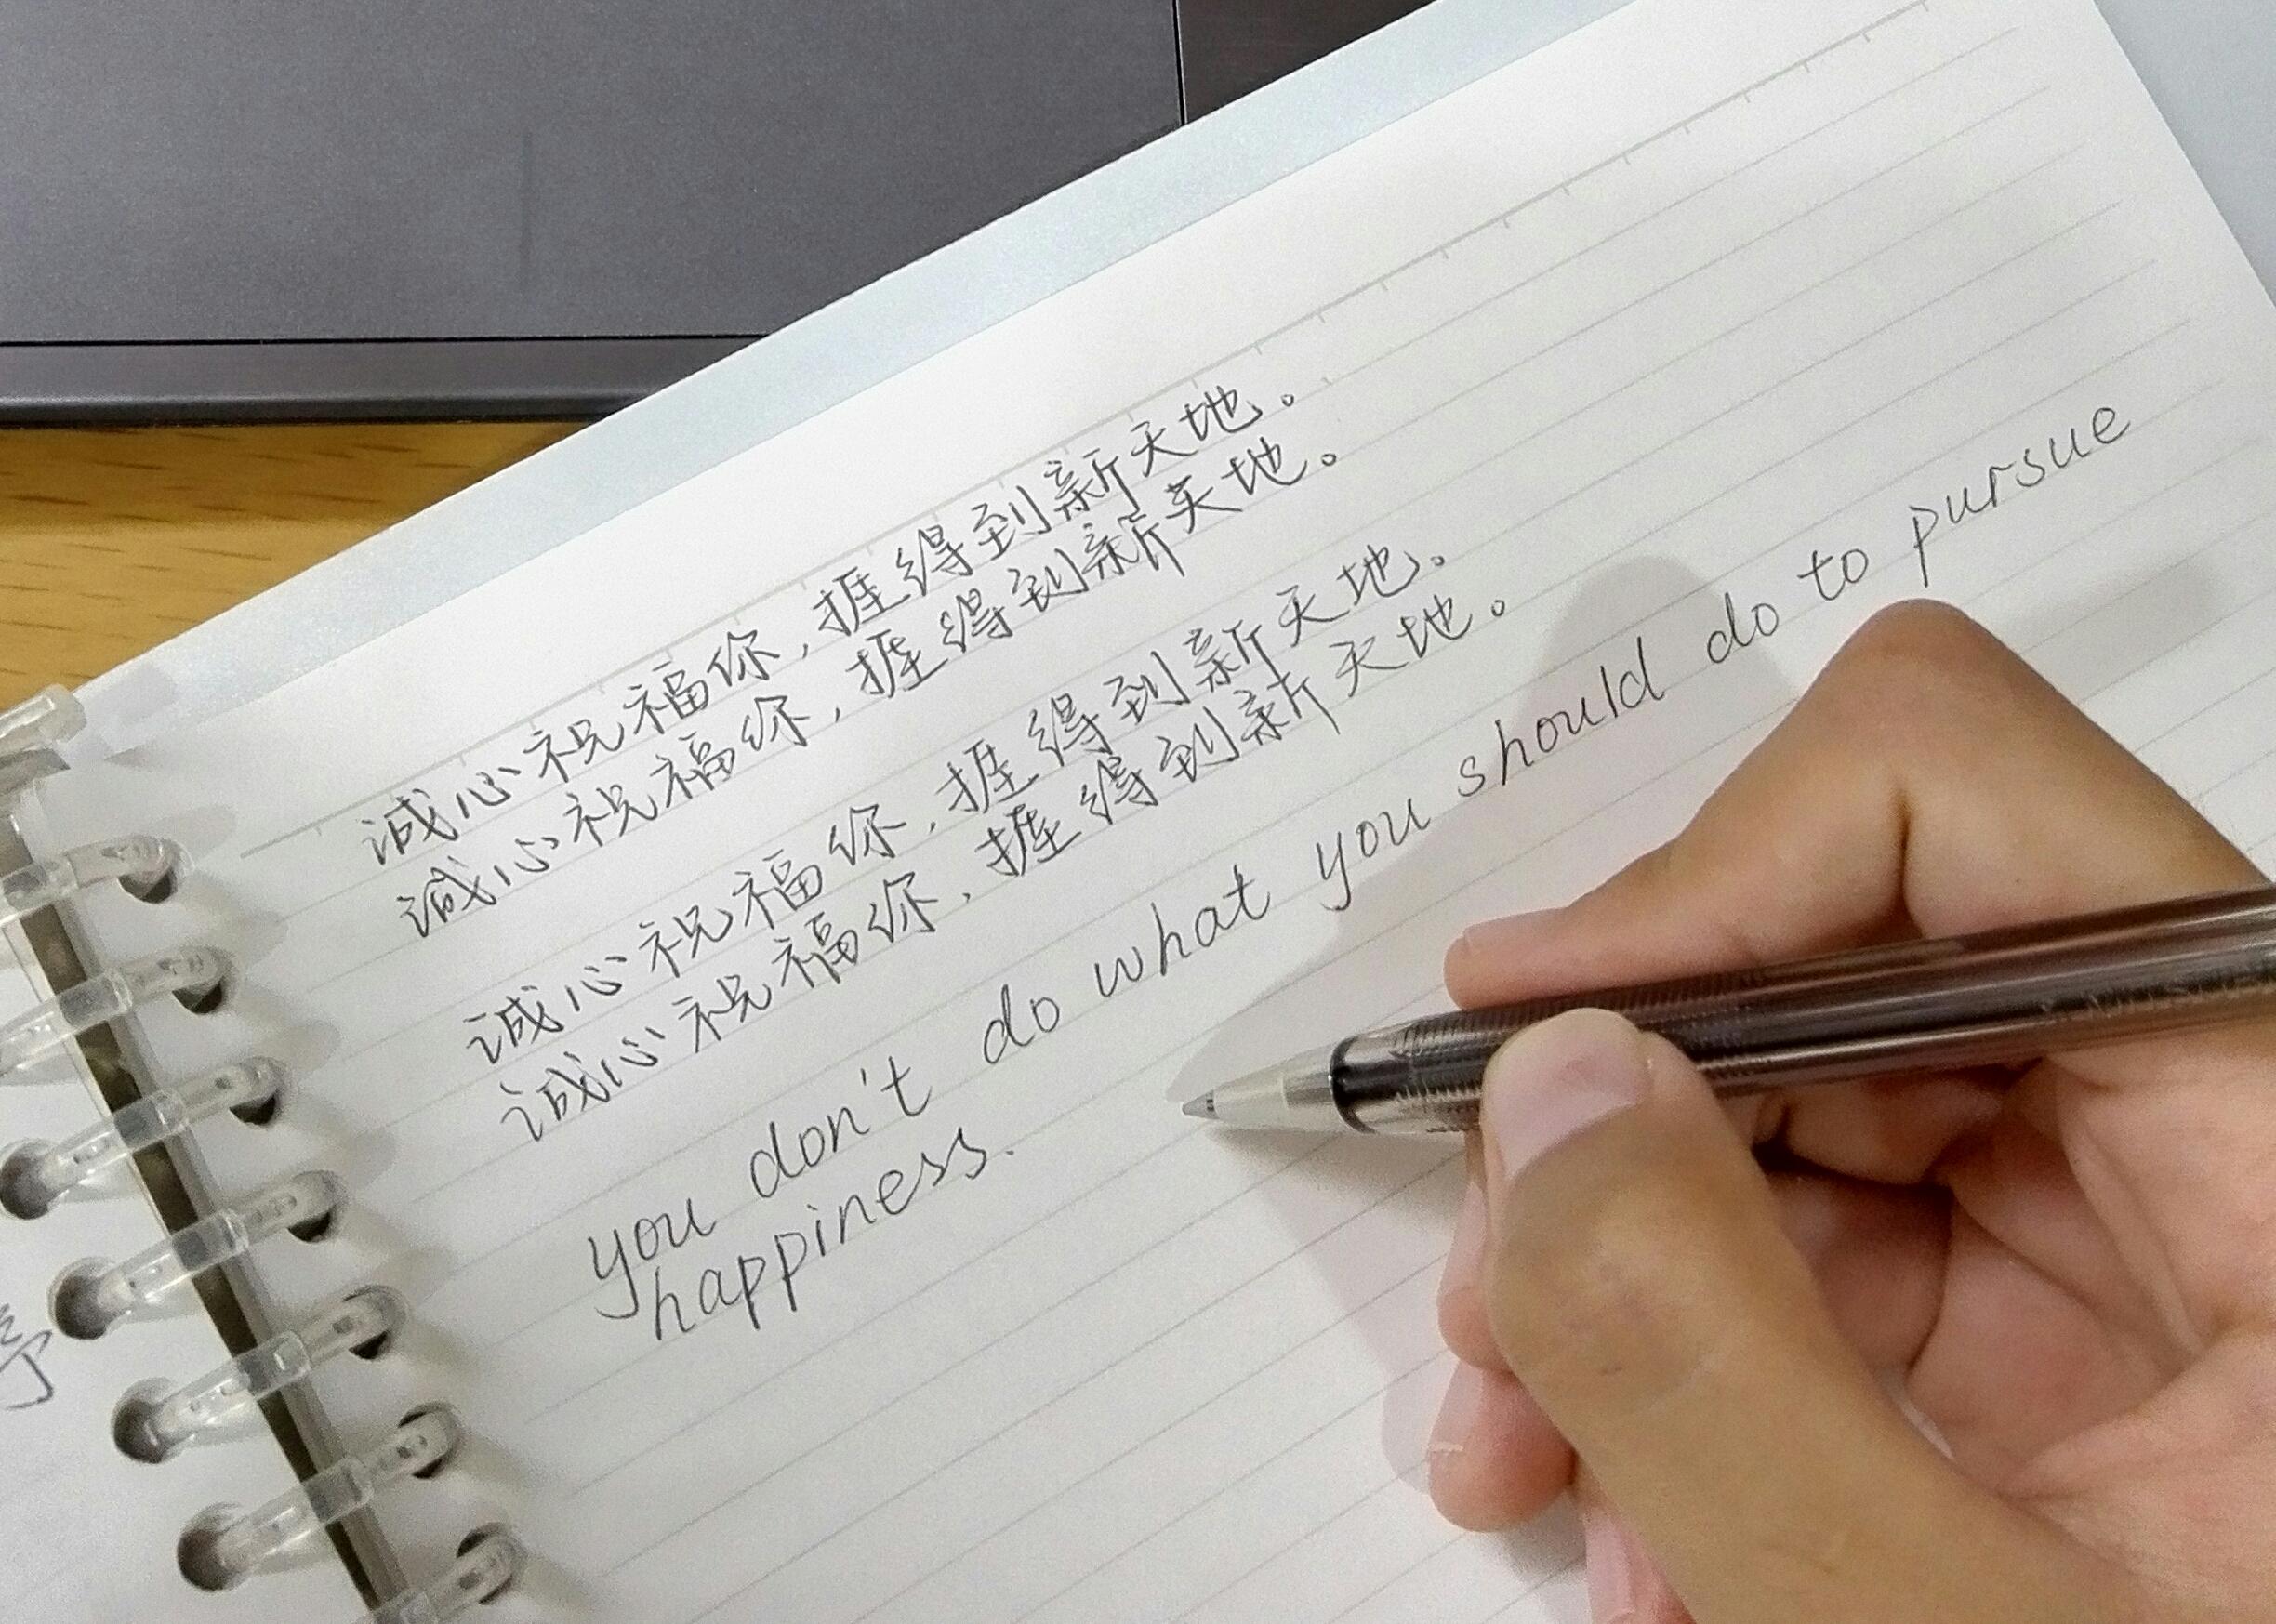 诚心祝福你，捱得到新天地。
诚心祝福你，捱得到新天地。
诚心祝福你，捱得到新天地。
诚心祝福你，捱得到新天地。
you don't do what you should do to pursue
happiness.